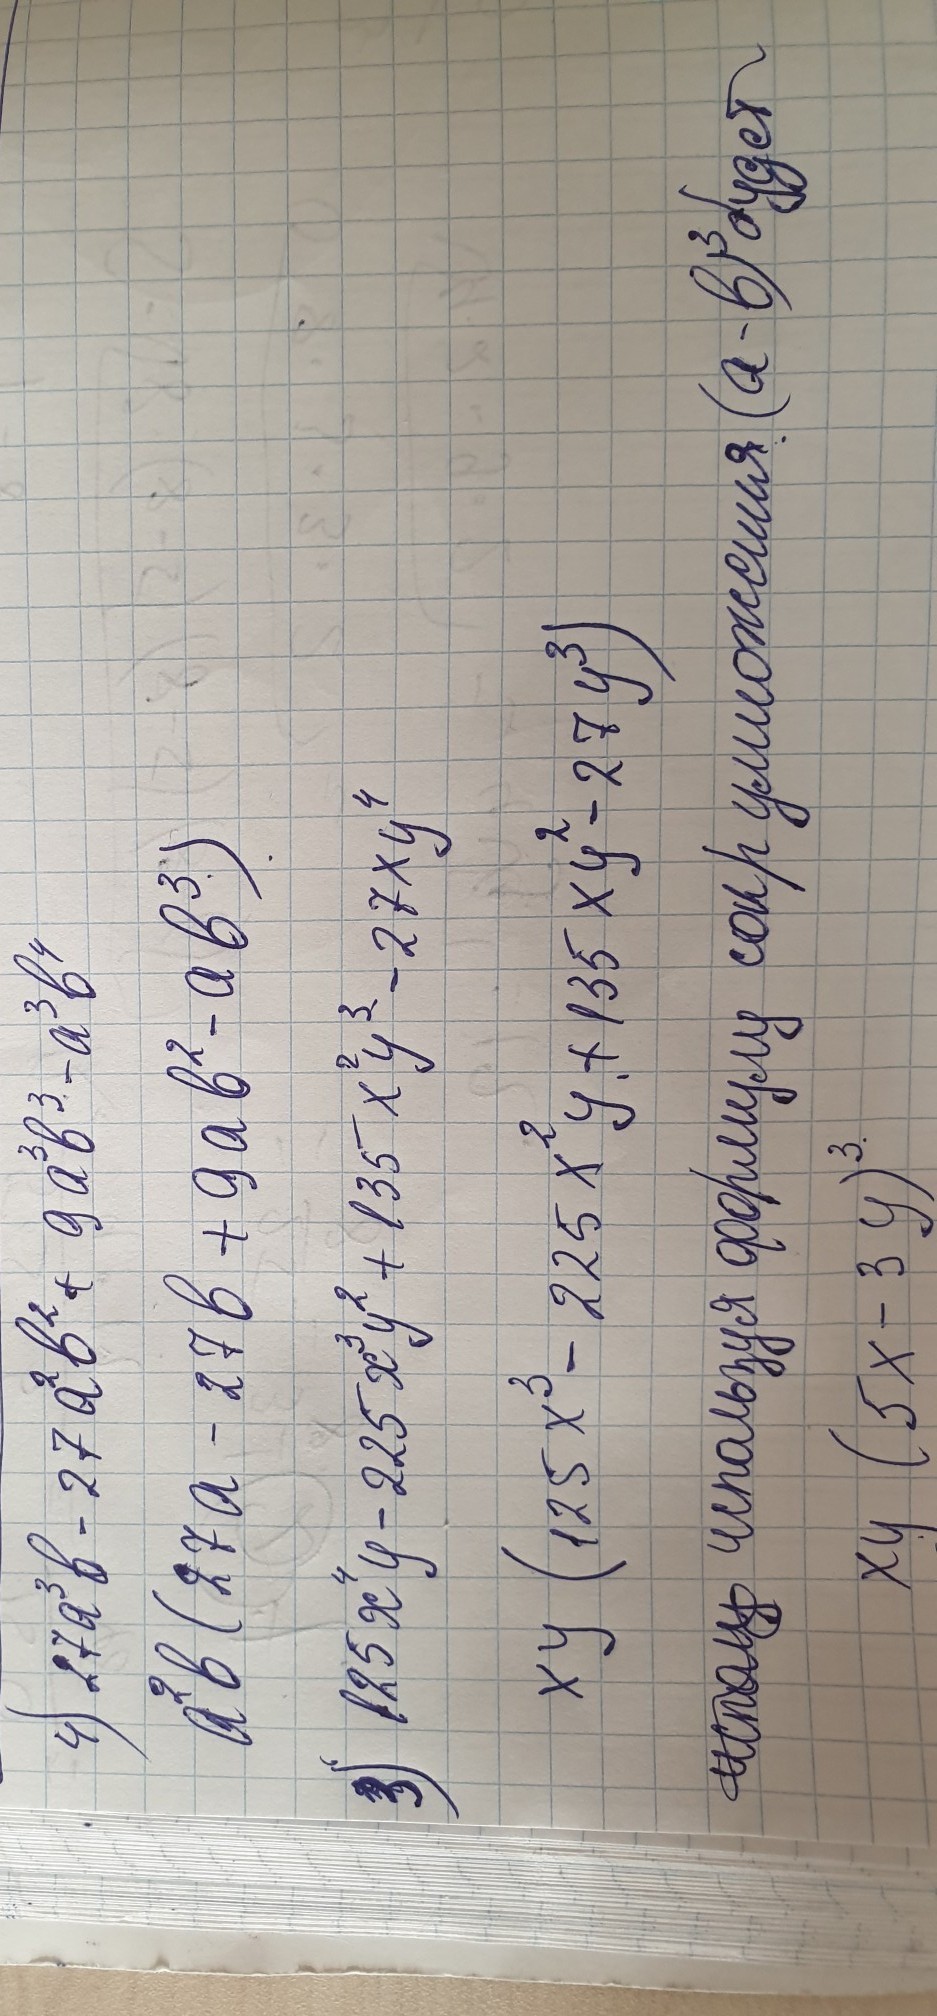 4) 27a³b - 27a²b² + 9a³b³ - a³b⁴
a²b (27a - 27b + 9ab² - ab³)
3) 125x⁴y - 225x³y² + 135x²y³ - 27xy⁴
xy (125x³ - 225x²y + 135xy² - 27y³)
используя формулу сокр умножения (a-b)³ будет
xy (5x - 3y)³